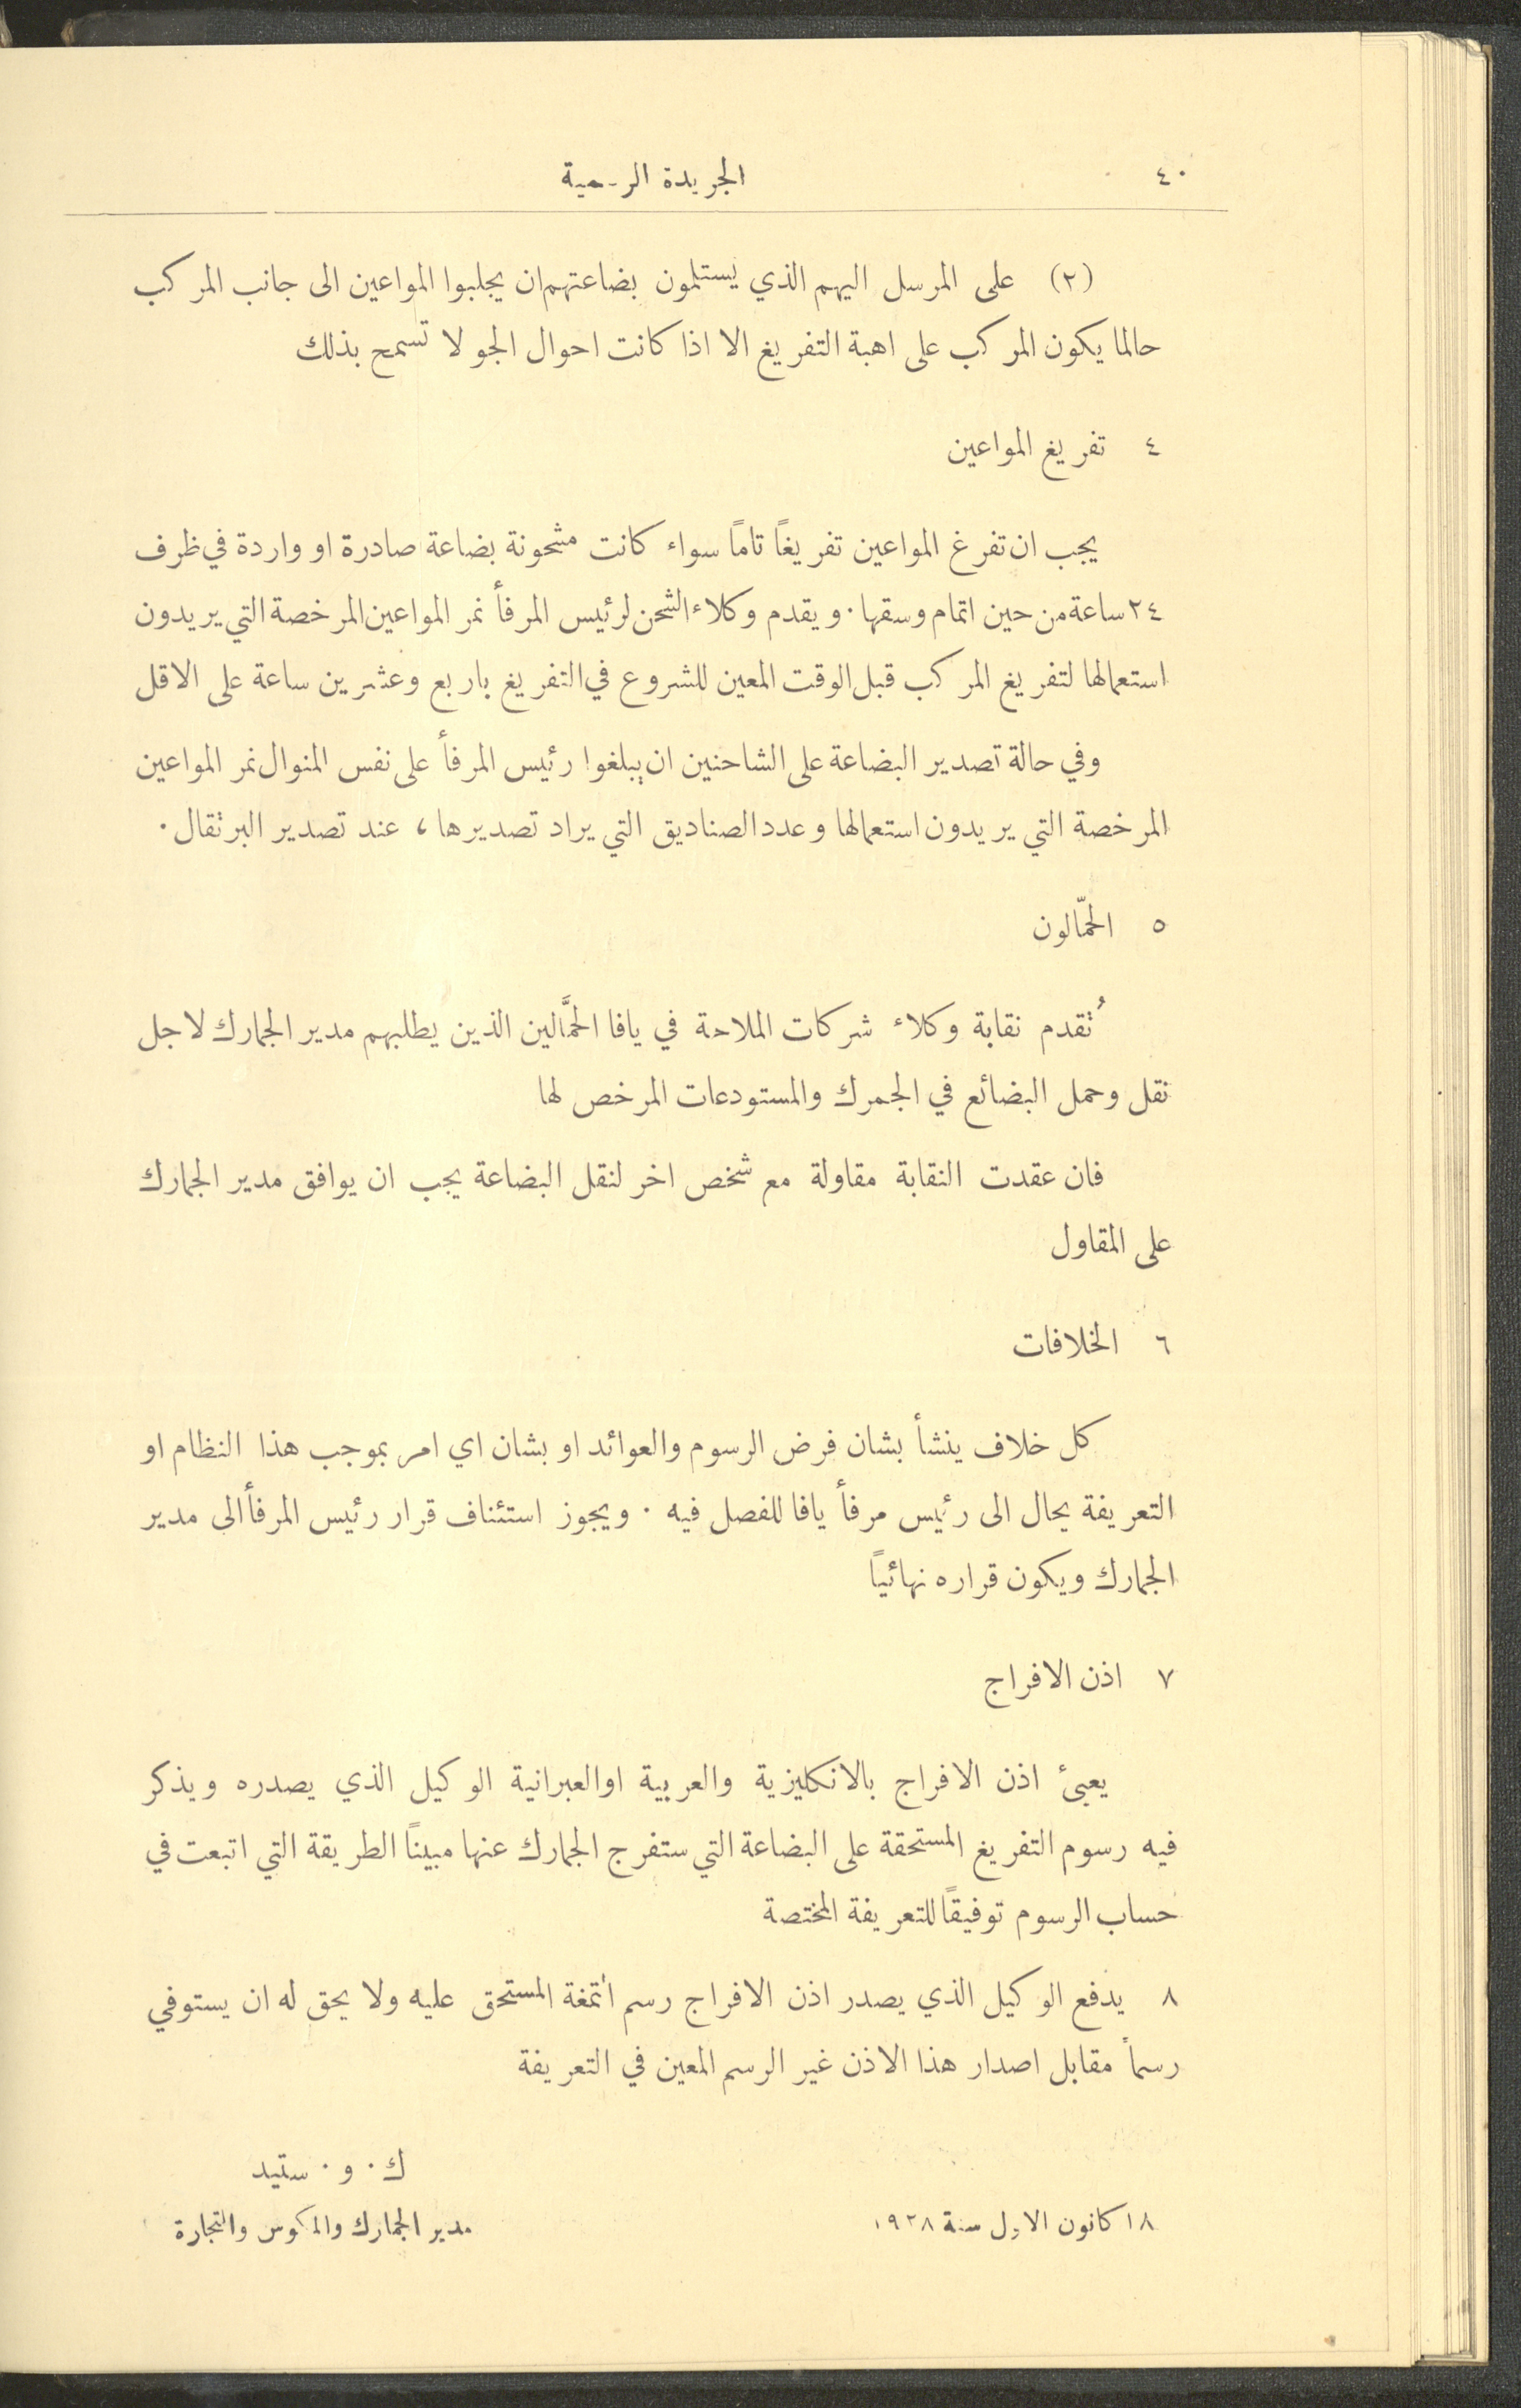 ٤٠
الجريدة الرسمية
(٢) على المرسل اليهم الذي يستلمون بضاعتهم ان يجلبوا المواعين الى جانب المركب
حالما يكون المركب على اهبة التفريغ الا اذا كانت احوال الجو لا تسمح بذلك
٤ تفريغ المواعين
يجب ان تفرغ المواعين تفريغاً تاماً سواء كانت مشحونة بضاعة صادرة او واردة في ظرف
٢٤ ساعة من حين اتمام وسقها. ويقدم وكلاء الشحن لرئيس المرفأ نمر المواعين المرخصة التي يريدون
استعمالها لتفريغ المركب قبل الوقت المعين للشروع في التفريغ باربع وعشرين ساعة على الاقل
وفي حالة تصدير البضاعة على الشاحنين ان يبلغوا رئيس المرفأ على نفس المنوال نمر المواعين
المرخصة التي يريدون استعمالها وعدد الصناديق التي يراد تصديرها، عند تصدير البرتقال.
٥ الحمّالون
تُقدم نقابة وكلاء شركات الملاحة في يافا الحمَّالين الذين يطلبهم مدير الجمارك لاجل
نقل وحمل البضائع في الجمرك والمستودعات المرخص لها
فان عقدت النقابة مقاولة مع شخص اخر لنقل البضاعة يجب ان يوافق مدير الجمارك
على المقاول
٦ الخلافات
كل خلاف ينشأ بشان فرض الرسوم والعوائد او بشان اي امر بموجب هذا النظام او
التعريفة يحال الى رئيس مرفأ يافا للفصل فيه. ويجوز استئناف قرار رئيس المرفأ الى مدير
الجمارك ويكون قراره نهائياً
٧ اذن الافراج
يعبئ اذن الافراج بالانكليزية والعربية او العبرانية الوكيل الذي يصدره ويذكر
فيه رسوم التفريغ المستحقة على البضاعة التي ستفرج الجمارك عنها مبيناً الطريقة التي اتبعت في
حساب الرسوم توفيقاً للتعريفة المختصة
٨ يدفع الوكيل الذي يصدر اذن الافراج رسم اتمغة المستحق عليه ولا يحق له ان يستوفي
رسماً مقابل اصدار هذا الاذن غير الرسم المعين في التعريفة
ك. و. ستيد
١٨ كانون الاول سنة ١٩٢٨
مدير الجمارك والمكوس والتجارة